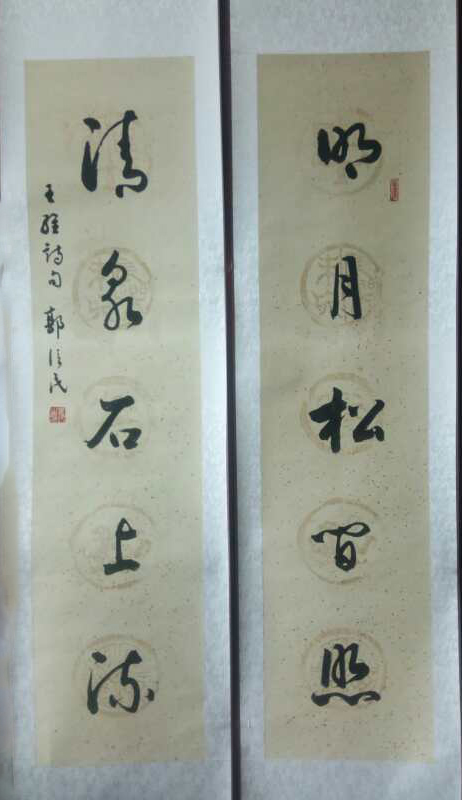 明月松间照
清泉石上流
王维诗句 郭
民